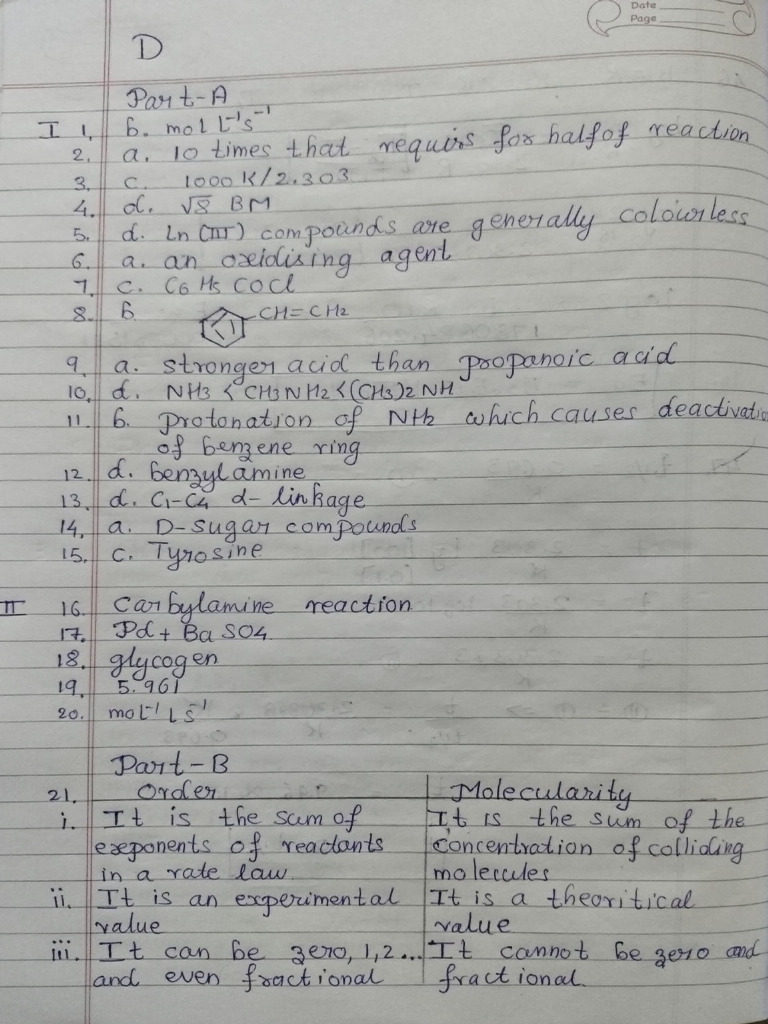 Date
Page
D
Part-A
I 1. b. mol L⁻¹s⁻¹
2. a. 10 times that requirs for half of reaction
3. c. 1000 K/2.303
4. d. √8 BM
5. d. Ln(III) compounds are generally colourless
6. a. an oxidising agent
7. c. C6H5COCl
8. b. CH=CH2
9. a. stronger acid than propanoic acid
10. d. NH3 < CH3NH2 < (CH3)2 NH
11. b. protonation of NH2 which causes deactivatio
of benzene ring
12. d. benzylamine
13. d. C1-C4 α- linkage
14. a. D-sugar compounds
15. c. Tyrosine
II 16. Carbylamine reaction
17. Pd + BaSO4
18. glycogen
19. 5.961
20. mol⁻¹ L s⁻¹
Part-B
21. Order Molecularity
i. It is the sum of It is the sum of the
exponents of reactants concentration of colliding
in a rate law. molecules
ii. It is an experimental It is a theoritical
value value
iii. It can be zero, 1, 2... It cannot be zero and
and even fractional fractional.